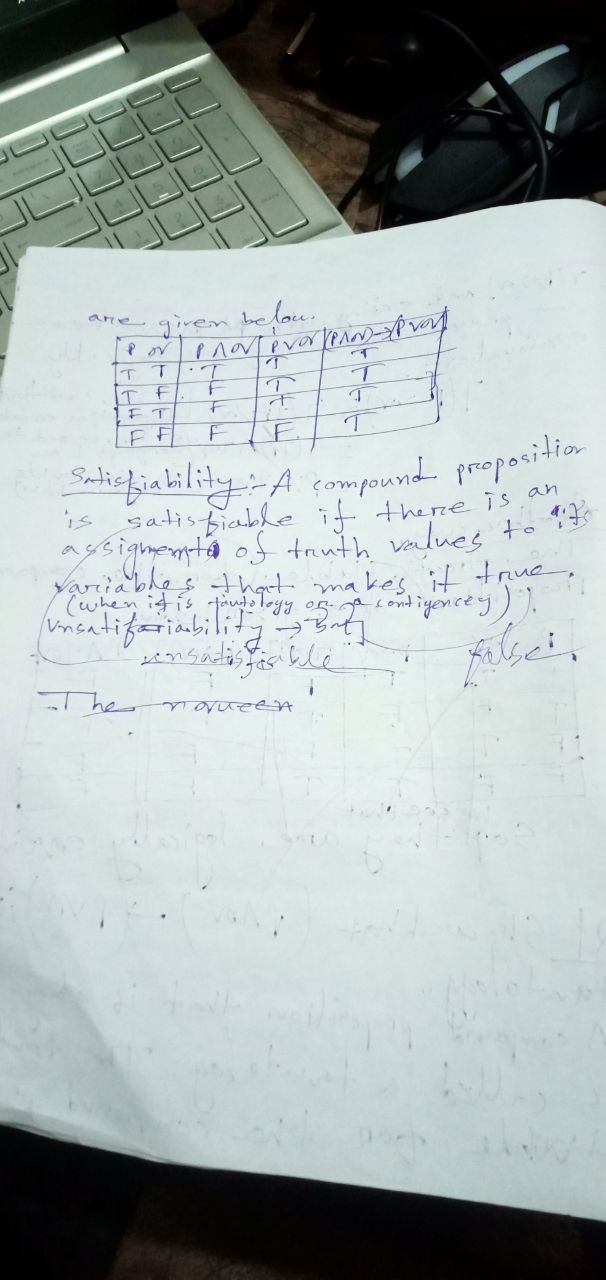 are given below.
P q P ∧ q P ∨ q (P∧q)→(P∨q)
T T T T T
T F F T T
F T F T T
F F F F T
Satisfiability :- A compound proposition
is satisfiable if there is an
assignment of truth values to its
variables that makes it true.
(when it is tautology or a contigencey)
Unsatisfiability →
unsatisfisible false.
The